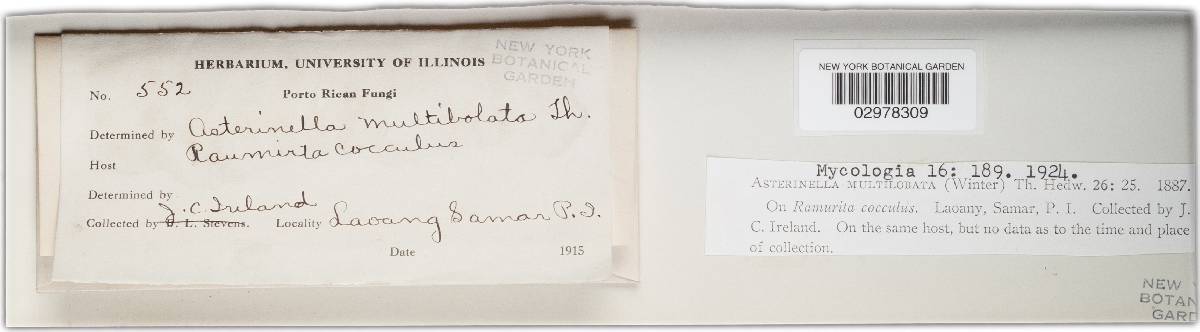 HERBARIUM, UNIVERSITY OF ILLINOIS
NEW YORK
BOTANICAL
GARDEN
No. 552 Porto Rican Fungi
Determined by Asterinella multibolata Th.
Host Raumirta cocculus
Determined by
J. C. Ireland
Collected by F. L. Stevens. Locality Laoang Samar P. I.
Date 1915
NEW YORK BOTANICAL GARDEN
02978309
Mycologia 16: 189. 1924.
ASTERINELLA MULTILOBATA (Winter) Th. Hedw. 26: 25. 1887.
On Ramurita cocculus. Laoany, Samar, P. I. Collected by J.
C. Ireland. On the same host, but no data as to the time and place
of collection.
NEW
BOTAN
GARD